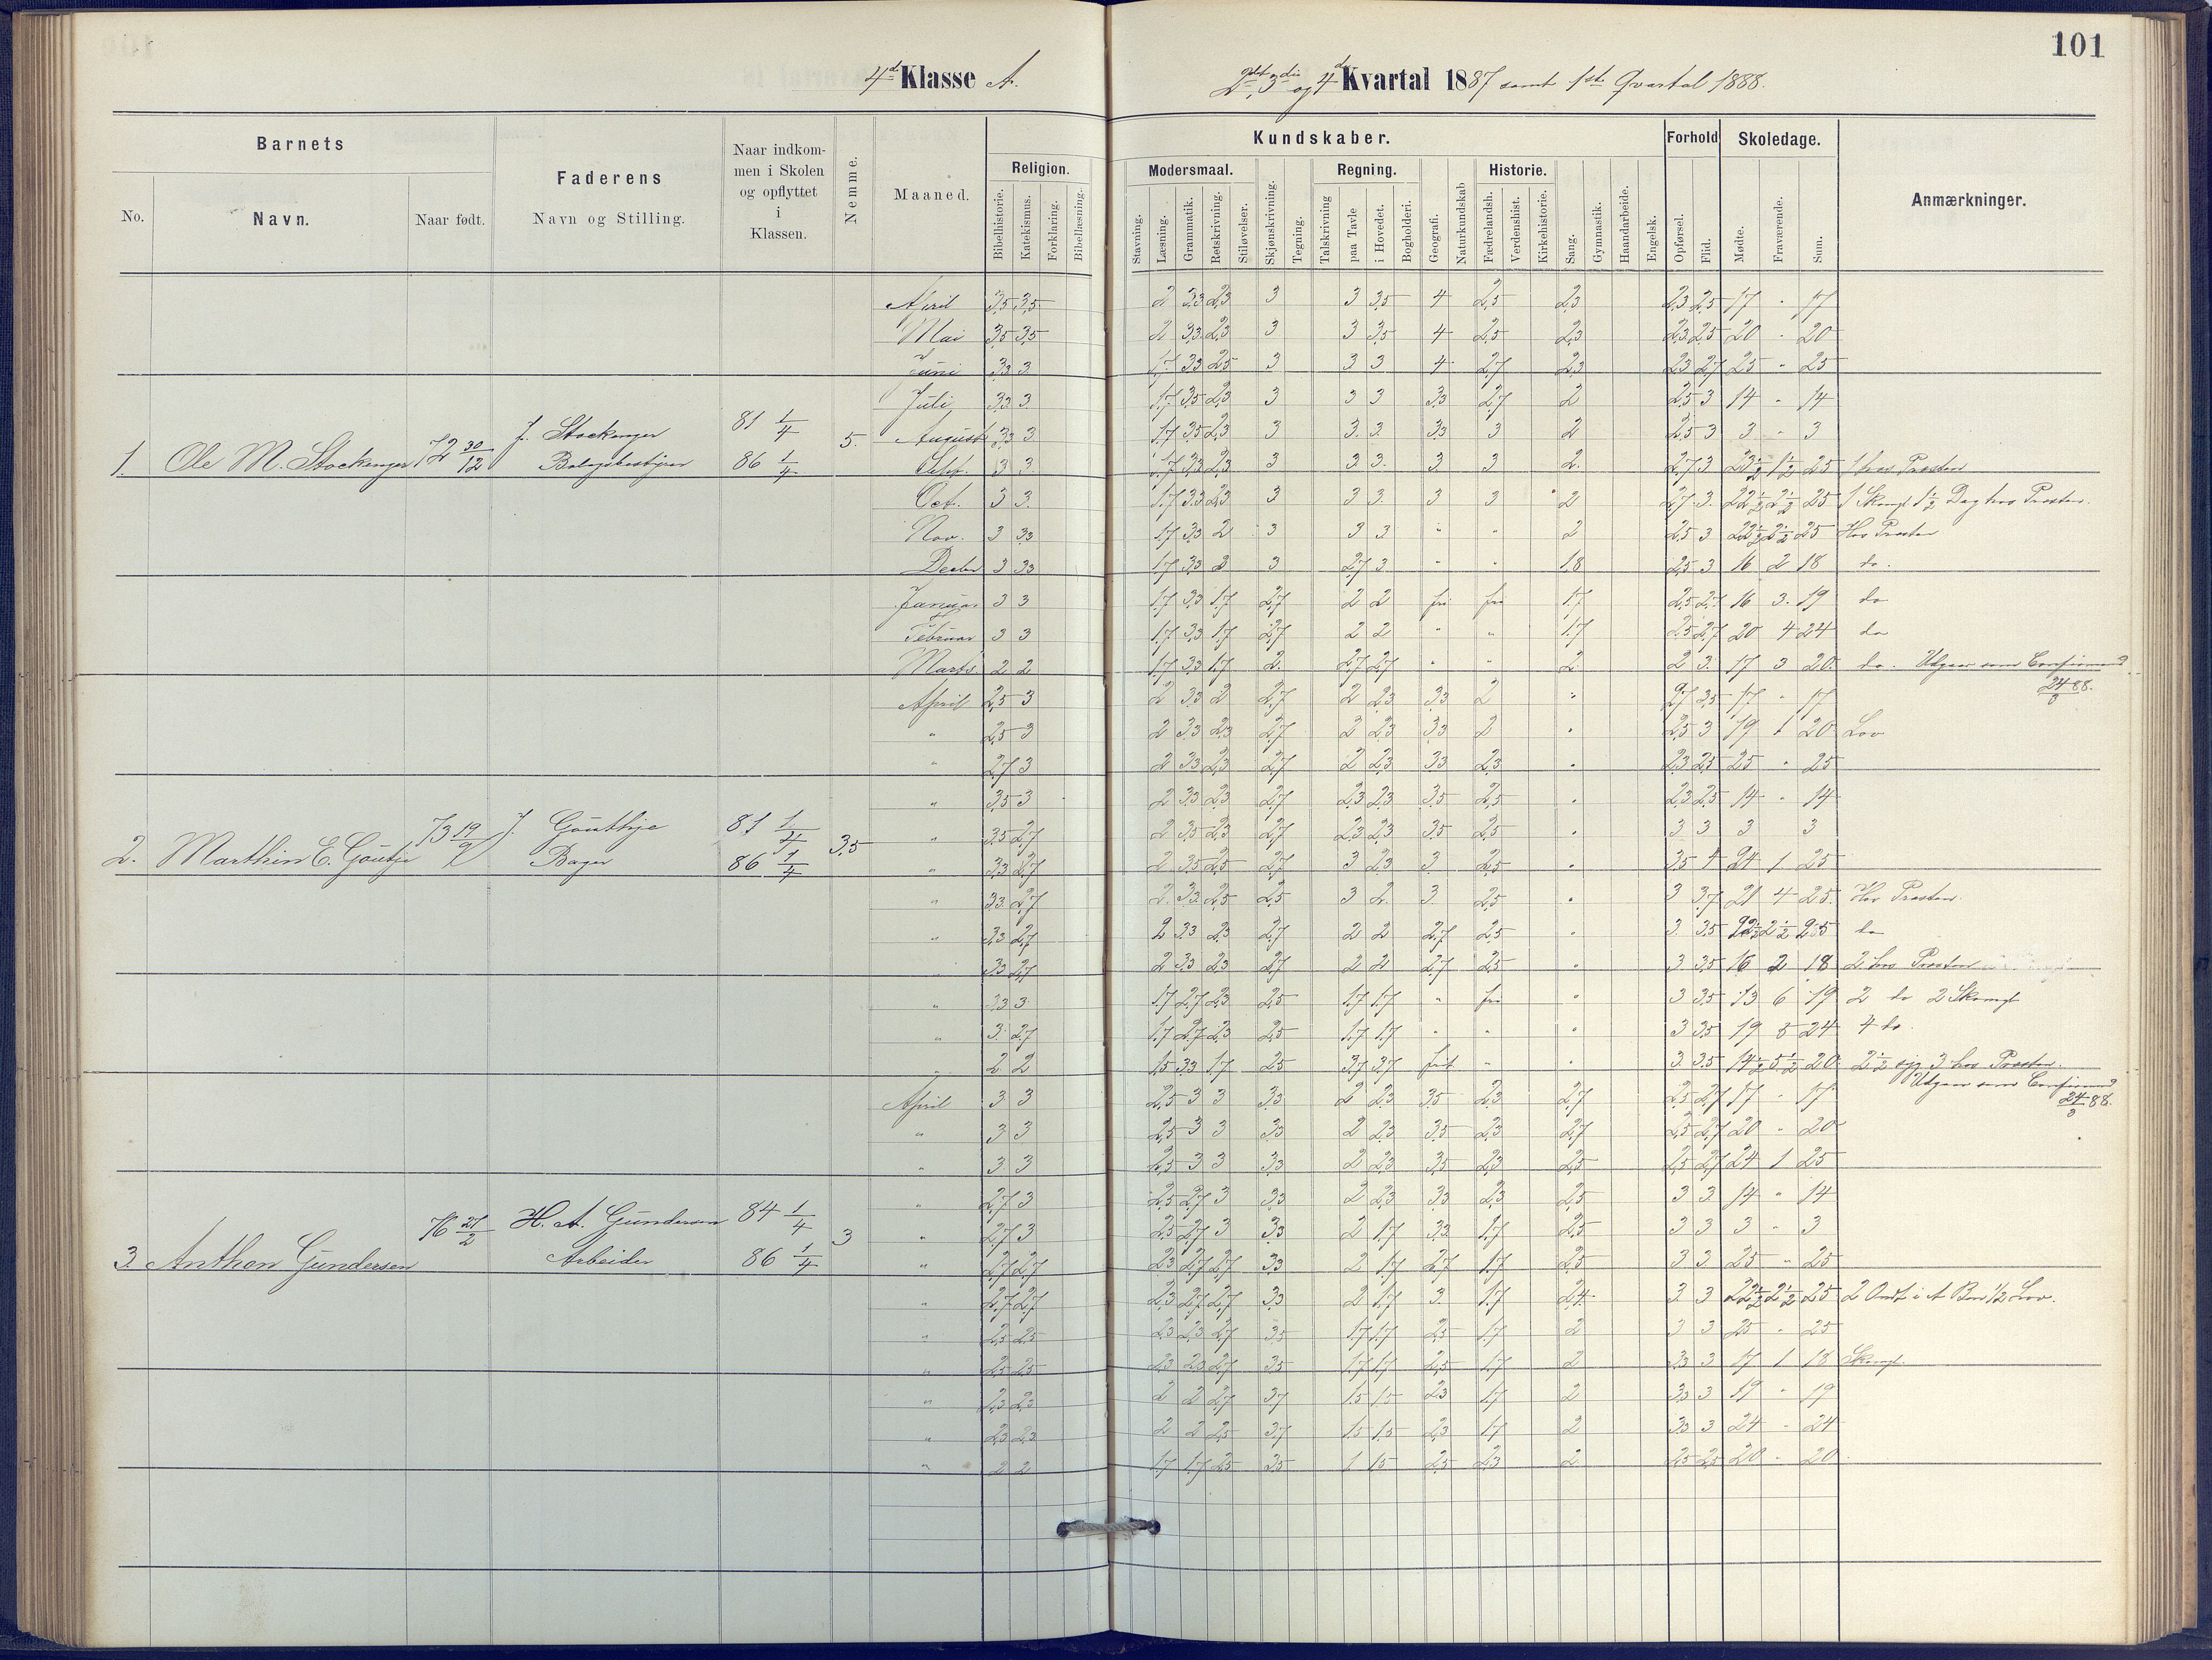 101
4de Klasse A.
2det, 3die og 4de Kvartal 1887 samt 1ste Qvartal 1888.
Barnets
Faderens
Navn og Stilling.
Naar indkommen i Skolen og opflyttet i Klassen.
Nemme.
Maaned.
Kundskaber.
Forhold
Skoledage.
Anmærkninger.
No.
Navn.
Naar født.
Religion.
Bibelhistorie.
Katekismus.
Forklaring.
Bibellæsning.
Modersmaal.
Stavning.
Læsning.
Grammatik.
Retskrivning.
Stiløvelser.
Skjønskrivning.
Tegning.
Regning.
Talskrivning
paa Tavle
i Hovedet.
Bogholderi.
Geografi.
Naturkundskab
Historie.
Fædrelandsh.
Verdenshist.
Kirkehistorie.
Sang.
Gymnastik.
Haandarbeide.
Engelsk.
Opførsel.
Flid.
Mødte.
Fraværende.
Sum.
April 3,5 3,5 2 3,3 2,3 3 3 3,5 4 2,5 2,3 2,3 2,5 17 " 17
Mai 3,5 3,5 2 3,3 2,3 3 3 3,5 4 2,5 2,3 2,3 2,5 20 " 20
Juni 3,3 3 1,7 3,3 2,5 3 3 3 4 2,7 2,3 2,3 2,7 25 " 25
Juli 3,3 3 1,7 3,5 2,3 3 3 3 3,3 2,7 2 2,5 3 14 " 14
1. Ole M. Stockinger 72 30/12 J. Stockinger 81 1/4 86 1/4 5.
August 3,3 3 1,7 3,5 2,3 3 3 3 3,3 3 2 2,5 3 3 " 3
Sept. 3 3 1,7 3,3 2,3 3 3 3 3 3 2 2,7 3 23 1/2 1 1/2 25 1 hos Presten
Oct. 3 3 1,7 3,3 2,3 3 3 3 3 3 2 2,7 3 22 1/2 2 1/2 25 1 Skoft 1 1/2 Dag hos Presten.
Nov. 3 3,3 1,7 3,3 2 3 3 3 " " 2 2,5 3 22 1/2 2 1/2 25 Hos Presten
Decbr 3 3,3 1,7 3,3 2 3 2,7 3 " " 1,8 2,5 3 16 2 18 do.
Januar 3 3 1,7 3,3 1,7 2,7 2 2 fri fri 1,7 2,5 2,7 16 3 19 do
Februar 3 3 1,7 3,3 1,7 2,7 2 2 " " 1,7 2,5 2,7 20 4 24 do
Marts 2 2 1,7 3,3 1,7 2 2,7 2,7 " " 2 2 3 17 3 20 do. Udgaar som Confirmand 24/3 88.
April 2,5 3 2 3,3 2 2,7 2 2,3 3,3 2 " 2,7 3,5 17 " 17
" 2,5 3 2 3,3 2,3 2,7 2 2,3 3,3 2 " 2,5 3 19 1 20 Lov
" 2,7 3 2 3,3 2,3 2,7 2 2,3 3,3 2,3 " 2,3 2,5 25 " 25
" 3,5 3 2 3,3 2,3 2,7 2,3 2,3 3,5 2,5 " 2,3 2,5 14 " 14
2. Marthin E. 73 19/9 J. Bager 81 1/4 86 1/4 3,5
" 3,5 2,7 2 3,5 2,3 2,7 2,3 2,3 3,5 2,5 " 3 3 3 3
" 3,3 2,7 2 3,5 2,5 2,7 3 2,3 3 2,5 " 3,5 4 24 1 25
" 3,3 2,7 2 3,3 2,5 2,5 3 2 3 2,5 " 3 3,7 21 4 25 Hos Presten.
" 3,3 2,7 2 3,3 2,3 2,7 2 2 2,7 2,5 " 3 3,5 22 1/2 2 1/2 25 do
" 3,3 2,7 2 3,3 2,3 2,7 2 2 2,7 2,5 " 3 3,5 16 2 18 2 hos Presten
" 3,3 3 1,7 2,7 2,3 2,5 1,7 1,7 " fri " 3 3,5 13 6 19 2 do 2 Skoft
" 3 2,7 1,7 2,7 2,3 2,5 1,7 1,7 " " " 3 3,5 19 5 24 4 do.
" 2 2 1,5 3,3 1,7 2,5 3,7 3,7 frit " " 3 3,5 14 1/2 5 1/2 20 2 1/2 syg 3 hos Presten.
Udgaar som Confirmand 24/3 88.
April 3 3 2,5 3 3 3,3 2 2,3 3,5 2,3 2,7 2,5 2,7 17 " 17
" 3 3 2,5 3 3 3,3 2 2,3 3,5 2,3 2,7 2,5 2,7 20 " 20
" 3 3 2,5 3 3 3,3 2 2,3 3,5 2,3 2,5 2,5 2,7 24 1 25
" 2,7 3 2,5 2,7 3 3,3 2 2,3 3,3 2,3 2,5 3 3 14 " 14
3. Anthon Gundersen 76 27/2 H. A. Gundersen Arbeider 84 1/4 86 1/4 3
" 2,7 3 2,5 2,7 3 3,3 2 1,7 3,3 1,7 2,5 3 3 3 " 3
" 2,7 2,7 2,3 2,7 2,7 3,3 2 1,7 2,7 1,7 2,5 3 3 25 " 25
" 2,7 2,7 2,3 2,7 2,7 3,3 2 1,7 3 1,7 2,4 3 3 22 1/2 2 1/2 25 1/2 Lov.
" 2,5 2,5 2,3 2,3 2,7 3,5 1,7 1,7 2,5 1,7 2 3 3 25 " 25
" 2,5 2,5 2,3 2,3 2,7 3,5 1,7 1,7 2,5 1,7 2 3,3 3 17 1 18 Skoft.
" 2,3 2,3 2 2 2,7 3,7 1,5 1,5 2,3 1,7 2 3,3 3 19 " 19
" 2,3 2,3 2 2 2,5 3,7 1,5 1,5 2,3 1,7 2 3,3 3 24 " 24
" 2 2 1,7 1,7 2,5 3,5 1 1,5 2,5 2,3 2 2,5 2,5 20 " 20